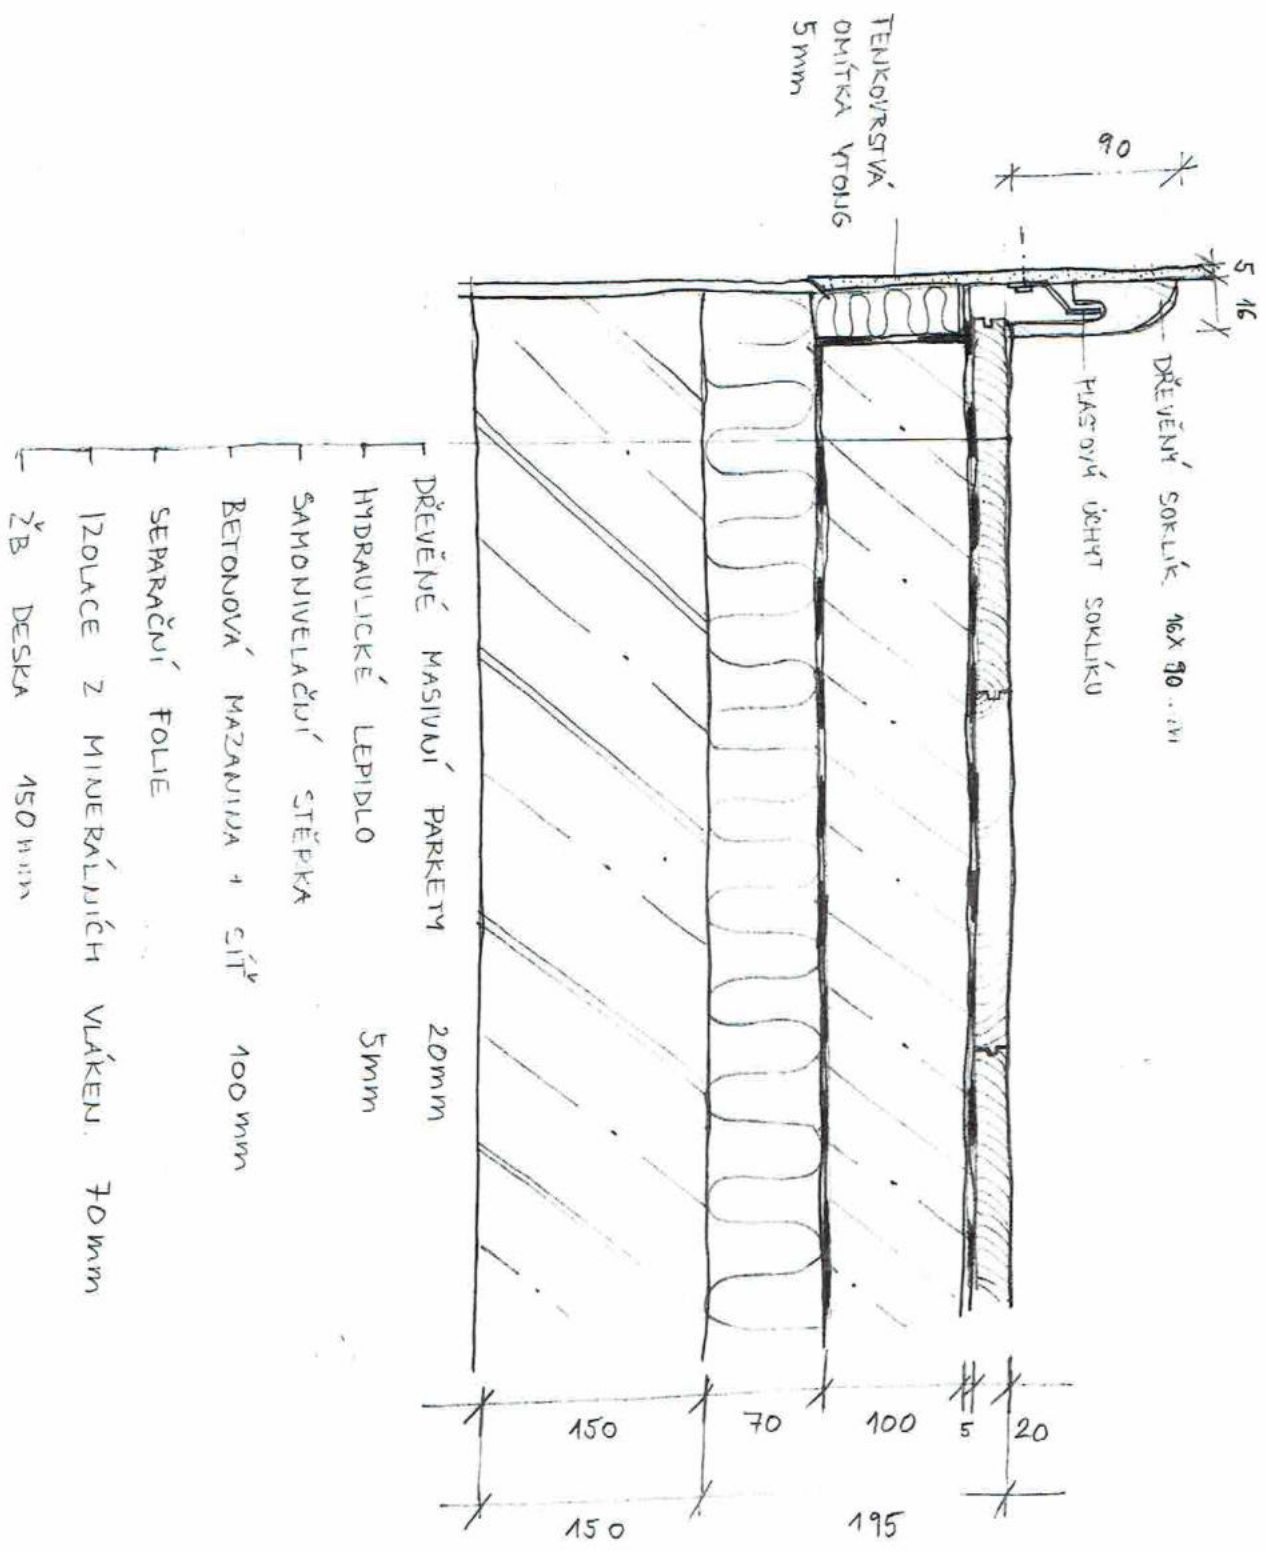 5
16
90
DŘEVĚNÝ SOKLÍK 16X90
PLASTOVÝ ÚCHYT SOKLÍKU
TENKOVRSTVÁ
OMÍTKA YTONG
5mm
20
5
100
70
150
195
150
DŘEVĚNÉ MASIVNÍ PARKETY 20mm
HYDRAULICKÉ LEPIDLO 5mm
SAMONIVELAČNÍ STĚRKA
BETONOVÁ MAZANINA + SÍŤ 100mm
SEPARAČNÍ FOLIE
IZOLACE Z MINERÁLNÍCH VLÁKEN. 70mm
ŽB DESKA 150mm